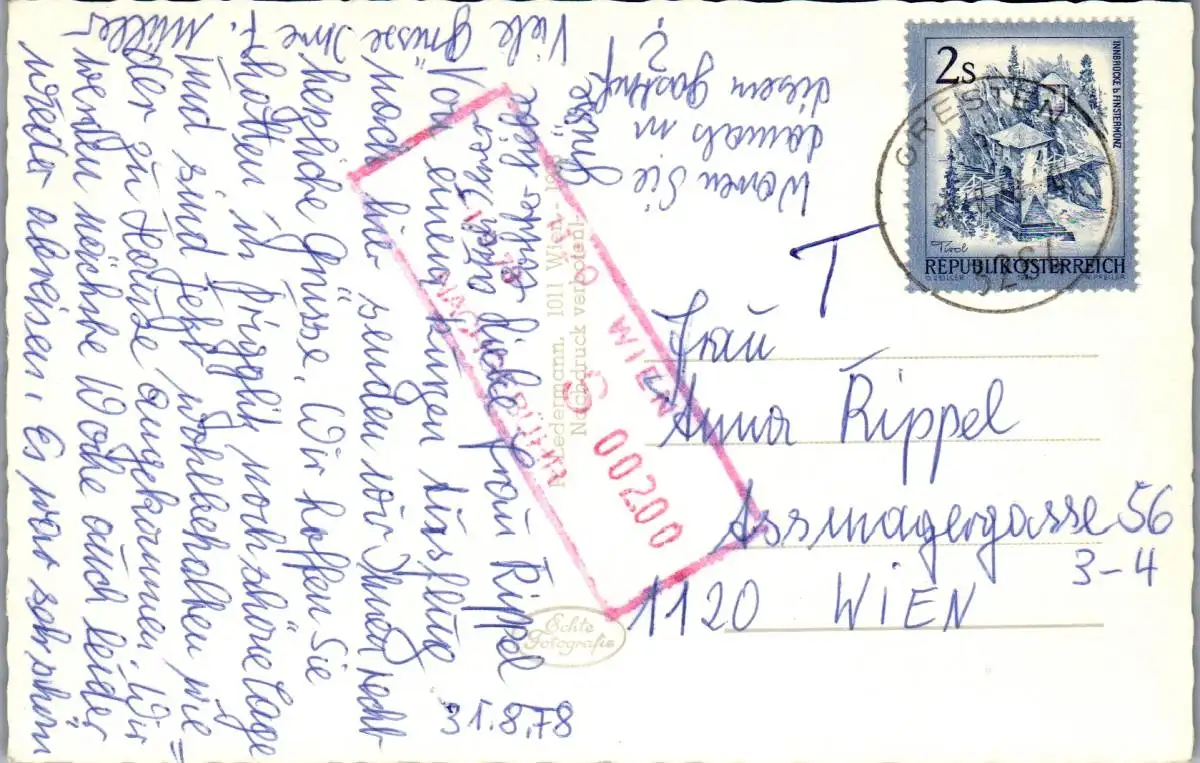 31.8.78
Sehr liebe Frau Rippel
Von einem kurzen Ausflug
noch hier senden wir Ihnen recht
herzliche Grüsse. Wir hoffen Sie
hatten in noch schöne Tage
und sind jetzt wohlbehalten wie=
der zu Hause angekommen. Wir
werden nächste Woche auch leider
wieder abreisen, es war sehr schön
Viele Grüsse Ihre F. Müller
Waren Sie
damals in
diesem Gasthof
?
T
Frau
Anna Rippel
Assmayergasse 56
3-4
1120 WIEN
2s
INNBRÜCKE b. FINSTERMÜNZ
Tirol
REPUBLIK ÖSTERREICH
GRESTEN
3264
1120 WIEN
NACHGEBÜHR
S 00200
P. Ledermann, 1011 Wien
Nachdruck verboten!
Echte
Fotografie